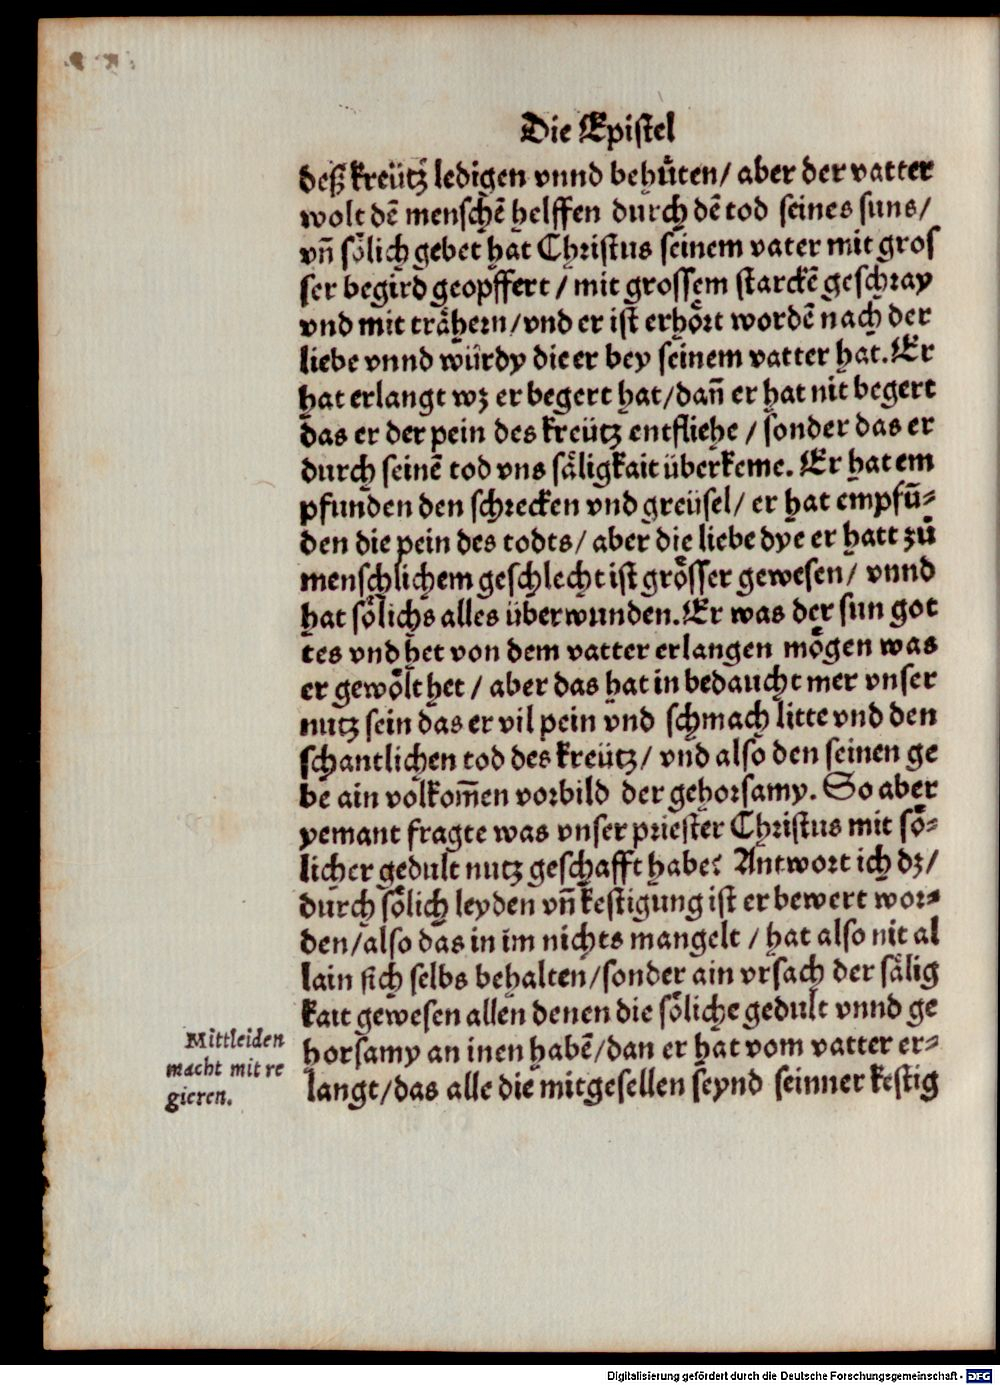 Die Epistel
deß kreütz ledigen vnnd behuͤten/ aber der vatter
wolt dē menschē helffen durch dē tod seines suns/
vñ soͤlich gebet hat Christus seinem vater mit gros
ser begird geopffert / mit grossem starckē geschray
vnd mit traͤhern/vnd er ist erhoͤrt wordē nach der
liebe vnnd würdy die er bey seinem vatter hat. Er
hat erlangt wz er begert hat/dañ er hat nit begert
das er der pein des kreütz entfliehe / sonder das er
durch seinē tod vns saͤligkait überkeme. Er hat em
pfunden den schrecken vnd greüsel/ er hat empfū-
den die pein des todts/ aber die liebe dye er hatt zů
menschlichem geschlecht ist groͤsser gewesen/ vnnd
hat soͤlichs alles überwunden. Er was der sun got
tes vnd het von dem vatter erlangen moͤgen was
er gewoͤlt het / aber das hat in bedaucht mer vnser
nutz sein das er vil pein vnd schmach litte vnd den
schantlichen tod des kreütz/ vnd also den seinen ge
be ain volkom̄en vorbild der gehorsamy. So aber
yemant fragte was vnser priester Christus mit soͤ-
licher gedult nutz geschafft habe? Antwort ich dz/
durch soͤlich leyden vñ kestigung ist er bewert wor-
den/also das in im nichts mangelt / hat also nit al
lain sich selbs behalten/sonder ain vrsach der saͤlig
kait gewesen allen denen die soͤliche gedult vnnd ge
horsamy an inen habē/dan er hat vom vatter er-
langt/das alle die mitgesellen seynd seinner kestig
Mittleiden
macht mit re
gieren.
Digitalisierung gefördert durch die Deutsche Forschungsgemeinschaft - DFG